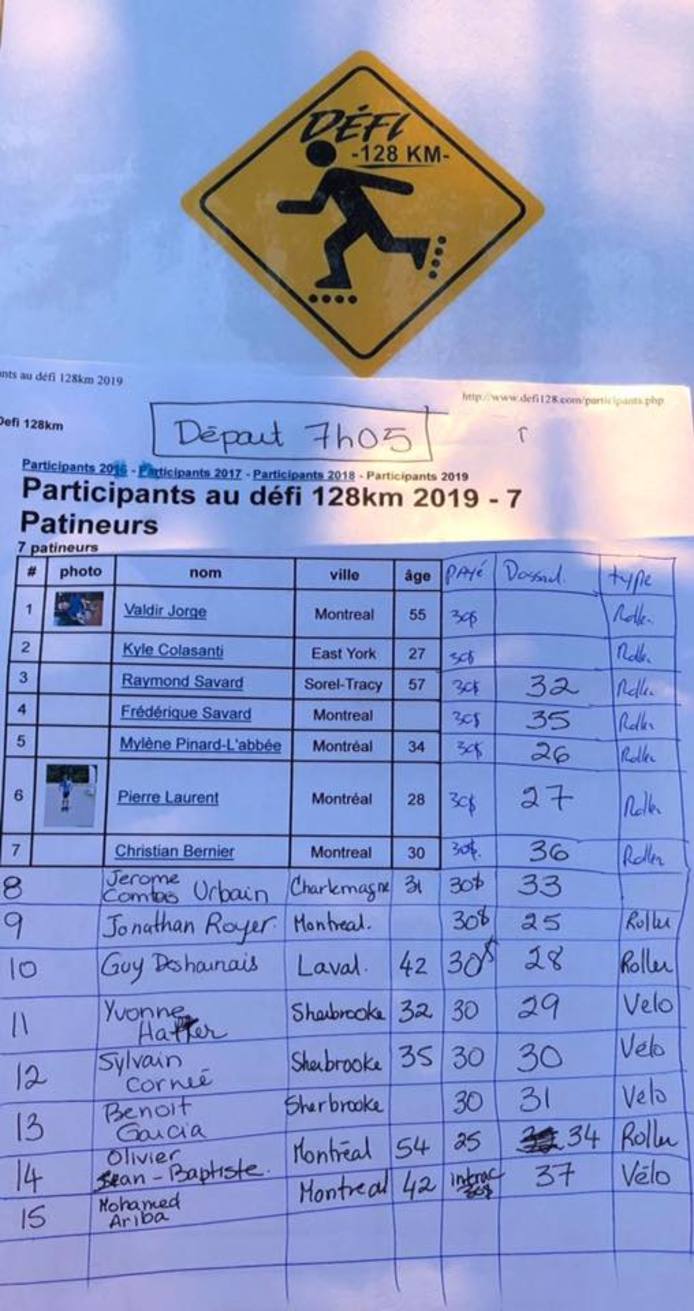 DÉFI
-128 KM-
nts au défi 128km 2019
http://www.defi128.com/participants.php
Defi 128km
Départ 7h05
Participants 2016 - Participants 2017 - Participants 2018 - Participants 2019
Participants au défi 128km 2019 - 7
Patineurs
7 patineurs
# photo nom ville âge PAYÉ Dossard. type
1 Valdir Jorge Montreal 55 30$ Roller
2 Kyle Colasanti East York 27 30$ Roller
3 Raymond Savard Sorel-Tracy 57 30$ 32 Roller
4 Frédérique Savard Montreal 30$ 35 Roller
5 Mylène Pinard-L'abbée Montréal 34 30$ 26 Roller
6 Pierre Laurent Montréal 28 30$ 27 Roller
7 Christian Bernier Montreal 30 30$. 36 Roller
8 Jerome
Combas Urbain Charlemagne 31 30$ 33
9 Jonathan Royer. Montreal. 30$ 25 Roller
10 Guy Deshainais Laval. 42 30$ 28 Roller
11 Yvonne
Hatter Sherbrooke 32 30 29 Velo
12 Sylvain
Corneé Sherbrooke 35 30 30 Vélo
13 Benoit
Garcia Sherbrooke 30 31 Velo
14 Olivier
Jean-Baptiste. Montréal 54 25 34 Roller
15 Mohamed
Ariba Montreal 42 intrac
30$ 37 Vélo